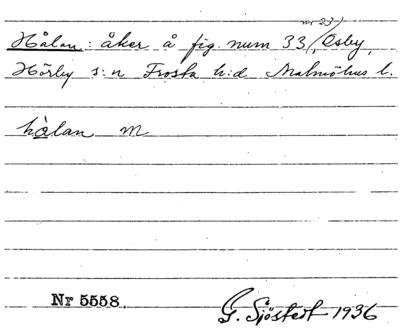 nr 23)
Hålan: åker å fig. num 33/, Osby,
Hörby s:n Frosta h:d Malmöhus l.
hålan m
Nr 5558.
G. Sjöstedt 1936